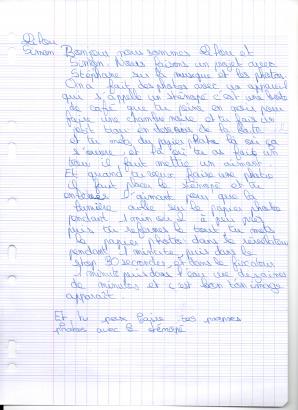 Simon Bonjour nous sommes et
Simon. Nous faisons un projet avec
Stéphane sur la musique et les photos.
On a fait des photos avec un appareil
qui s'appelle un sténopé c'est une boîte
de café que tu peins en noir pour
faire une chambre noire et tu fais un
petit trou en dessous de la boîte !!
et tu mets du papier photo là où ça
s'ouvre et là où tu as fait un
trou il faut mettre un aimant.
Et quand tu veux faire une photo
il faut placer le sténopé et tu
enlèves l'aimant pour que la
lumière aille sur le papier photo
pendant 1 minute à peu près
puis tu refermes le tout. tu mets
le papier photo dans le révélateur
pendant 1 minute, puis dans le
stop 30 secondes, et dans le fixateur
1 minute puis dans l'eau une dizaines
de minutes et c'est bon ton image
apparaît.
Et tu peux faire tes propres
photos avec le sténopé